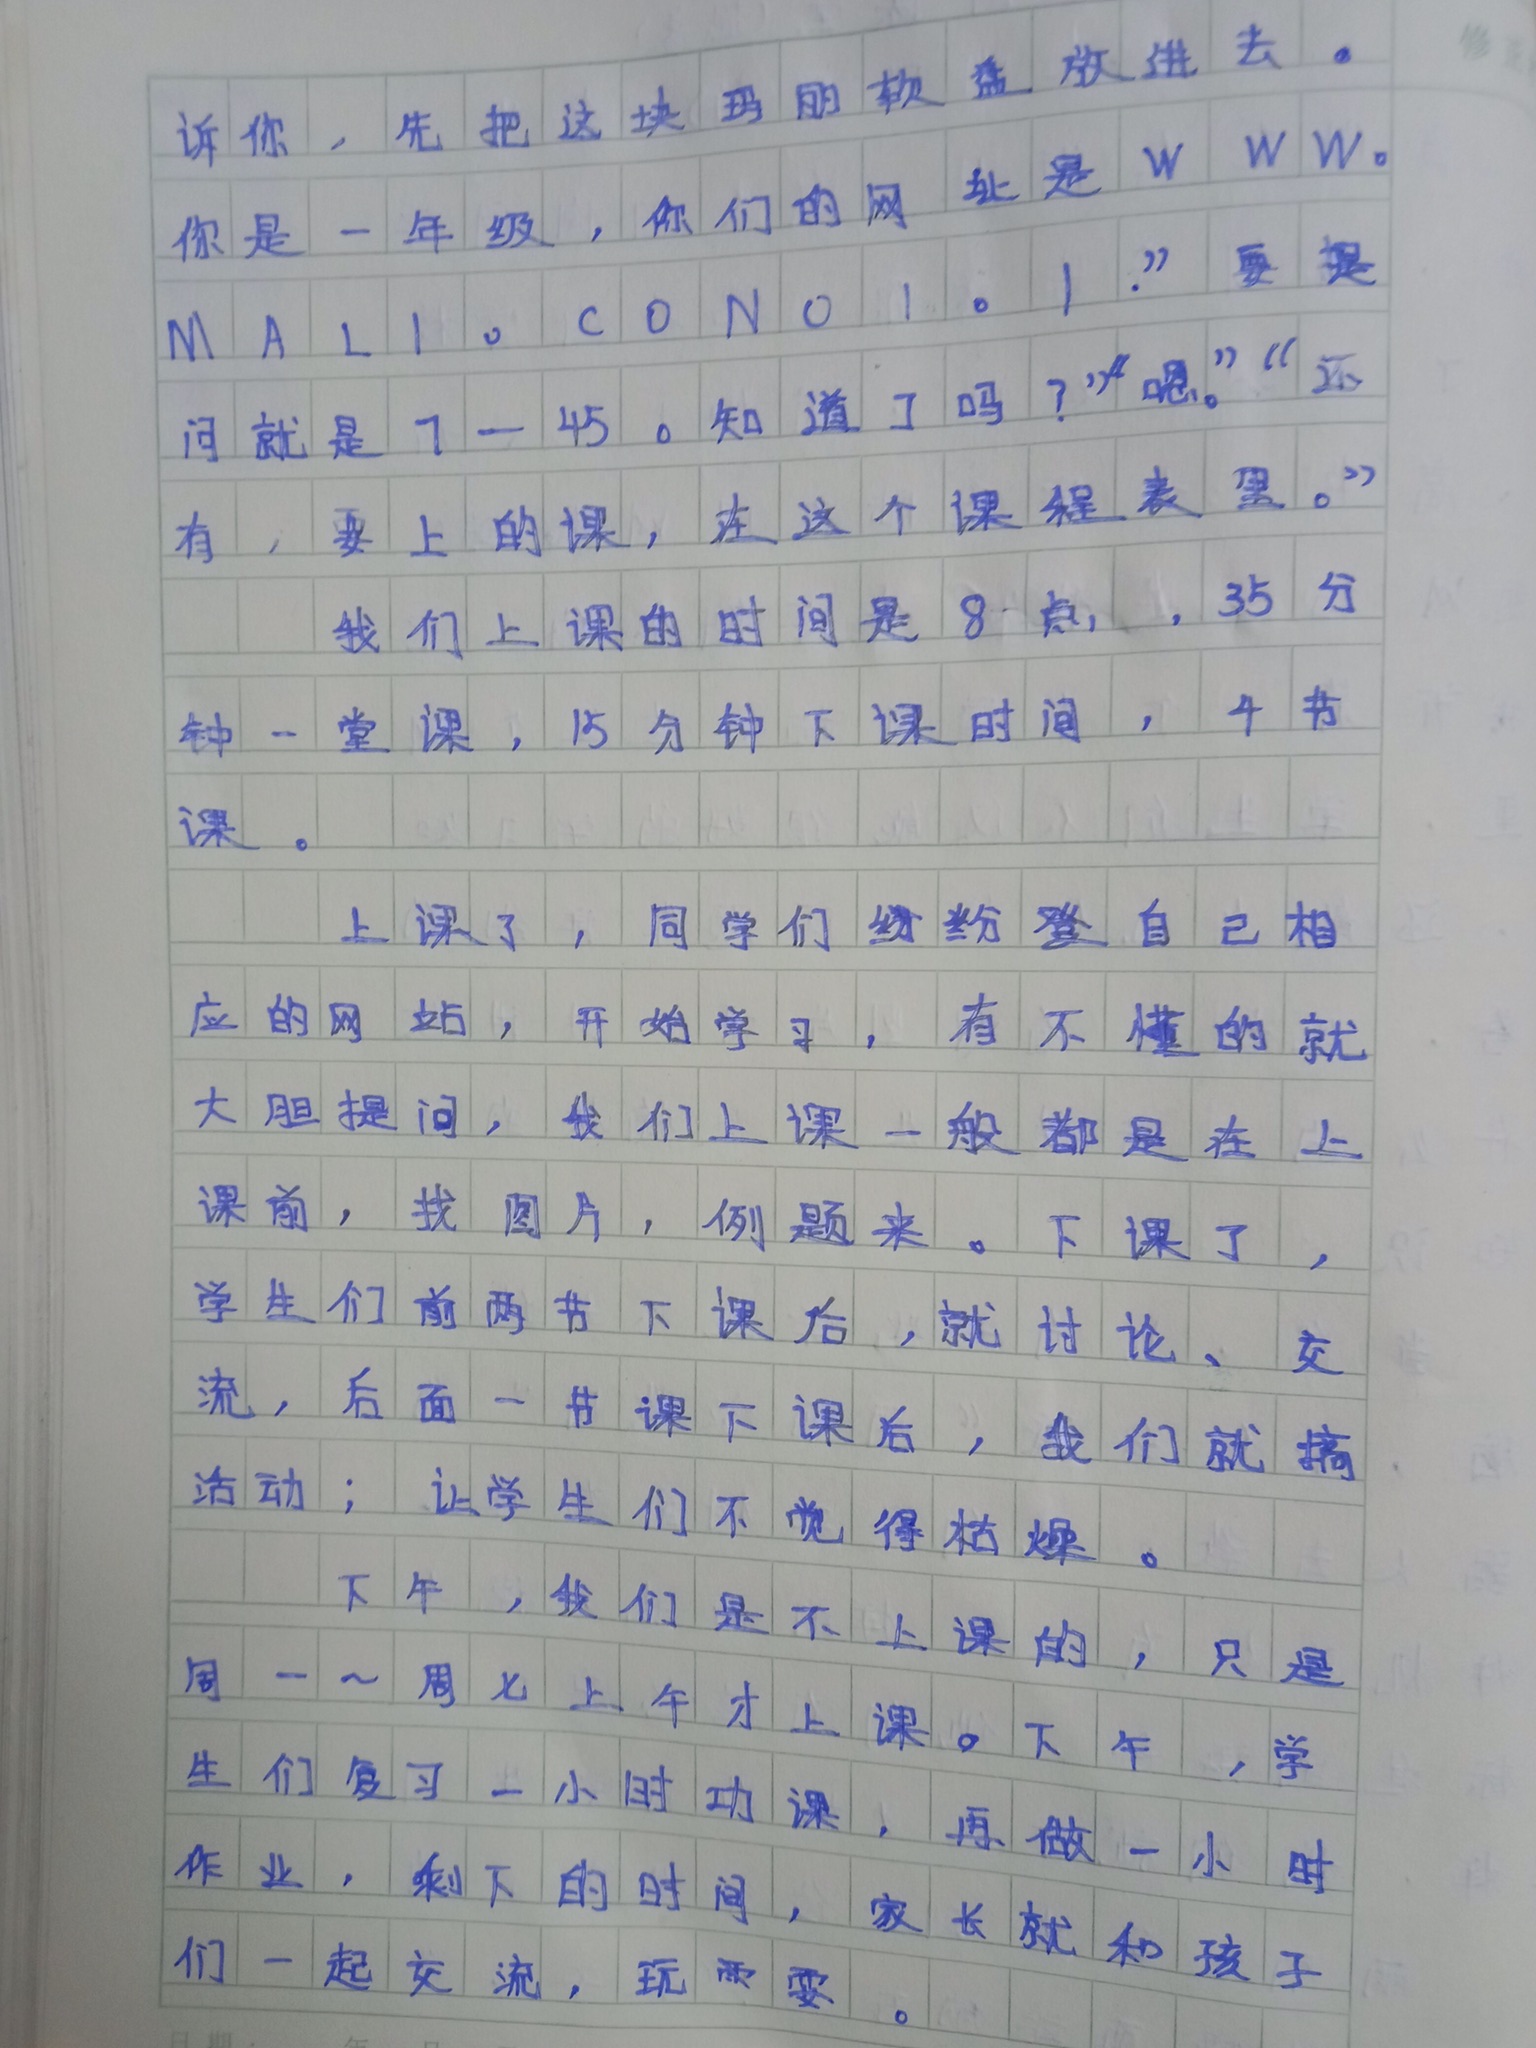 诉你，先把这块玛丽软盘放进去。
你是一年级，你们的网址是WWW。
MALI。CONO1。1.”要提
问就是7—45。知道了吗？”“嗯。”“还
有，要上的课，在这个课程表里。”
我们上课的时间是8点，35分
钟一堂课，15分钟下课时间，4节
课。
上课了，同学们纷纷登自己相
应的网站，开始学习，有不懂的就
大胆提问，我们上课一般都是在上
课前，找图片，例题来。下课了，
学生们前两节下课后，就讨论、交
流，后面一节课下课后，我们就搞
活动；让学生们不觉得枯燥。
下午，我们是不上课的，只是
周一～周七上午才上课。下午，学
生们复习一小时功课，再做一小时
作业，剩下的时间，家长就和孩子
们一起交流，玩耍。